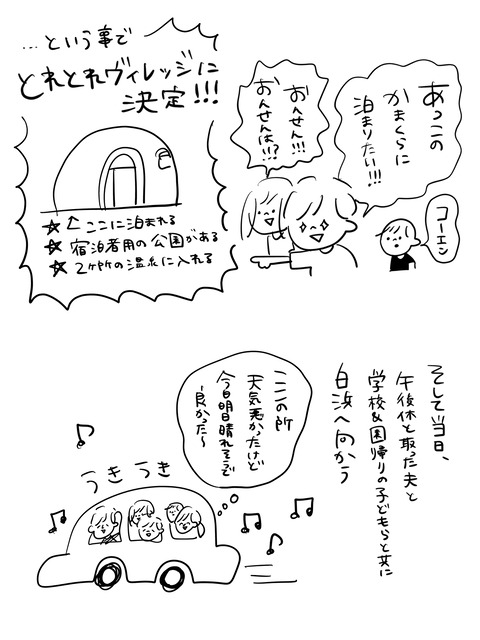 あっこの
かまくらに
泊まりたい!!!
おんせん!!!
おんせんは!!?
コーエン
…という事で
とれとれヴィレッジに
決定!!!
☆ここに泊まれる
☆宿泊者用の公園がある
☆2ヶ所の温泉に入れる
そして当日、
午後休と取った夫と
学校&園帰りの子どもらと共に
白浜へ向かう
ここの所
天気悪かったけど
今日明日晴れそうで
良かった〜
うきうき